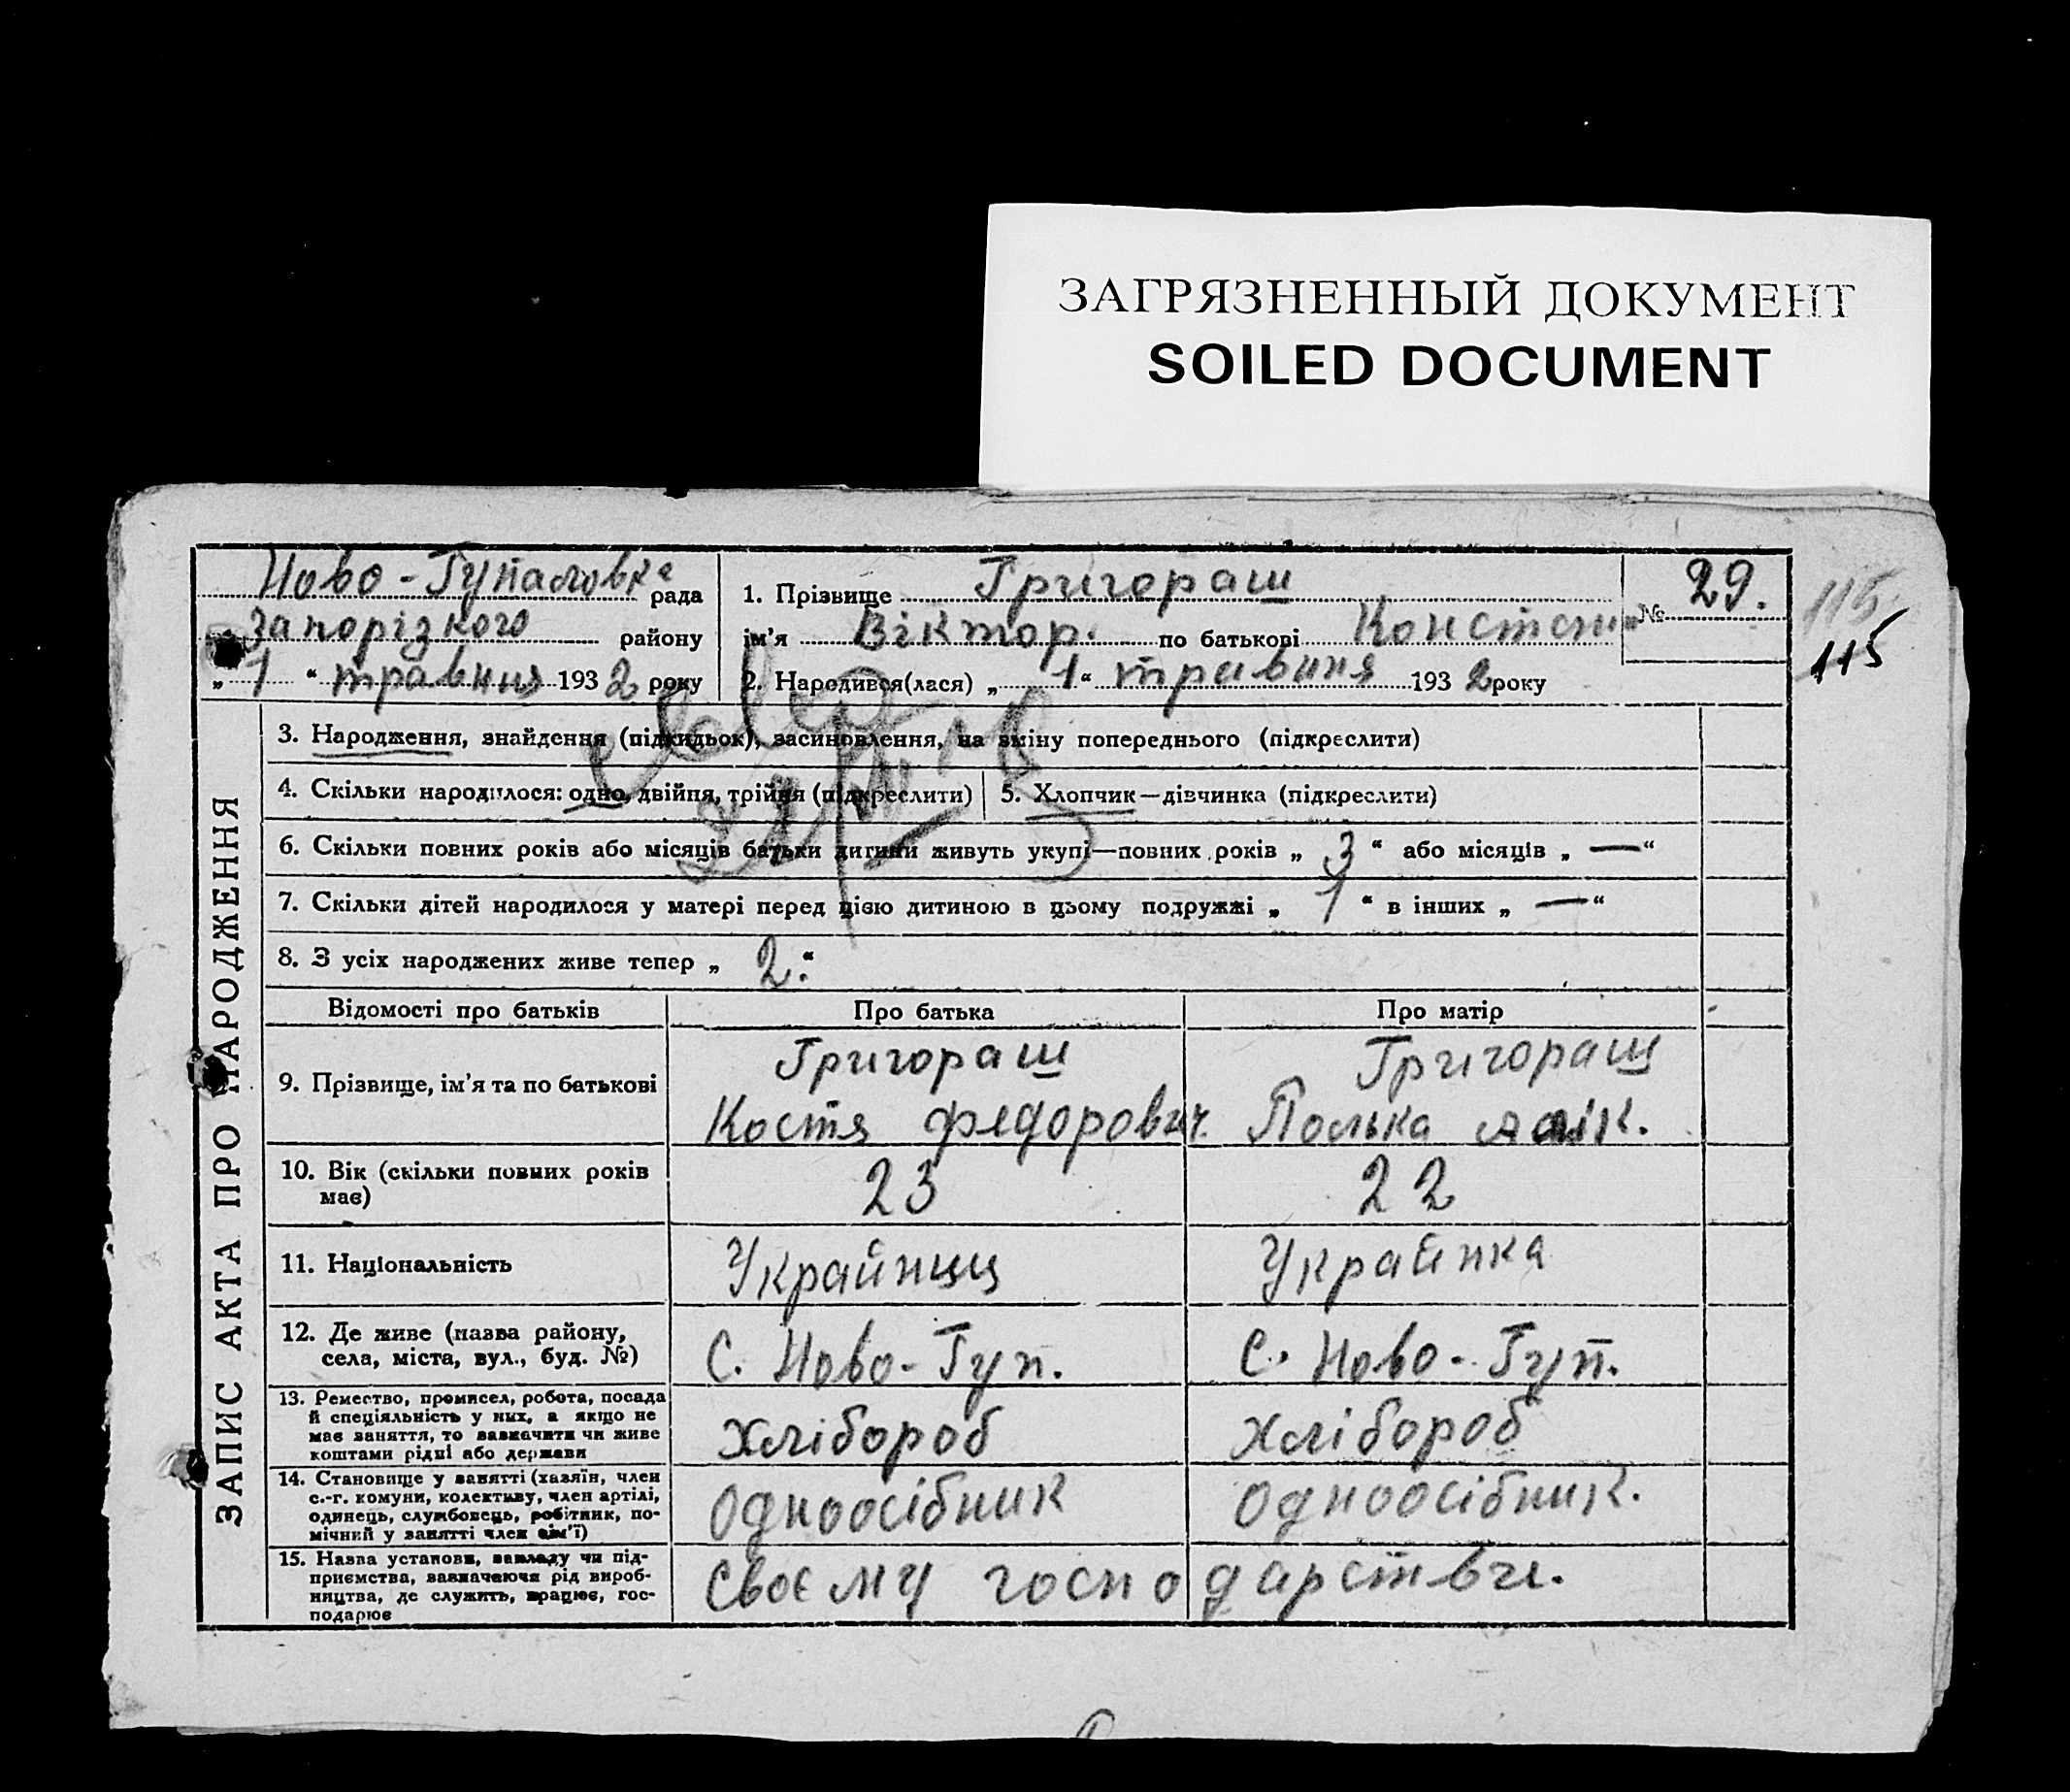 ЗАГРЯЗНЕННЫЙ ДОКУМЕНТ
SOILED DOCUMENT
Ново-Гупаловка рада
Запорізкого району
„ 1 “ травння 1932 року
1. Прізвище Григораш
ім’я Віктор. по батькові Констан
2. Народився(лася) „ 1 “ травння 1932 року
№ 29.
115
115
ЗАПИС АКТА ПРО НАРОДЖЕННЯ
3. Народження, знайдення (підкидьок), засиновлення, на зміну попереднього (підкреслити)
4. Скільки народилося: одно, двійня, трійня (підкреслити)
5. Хлопчик—дівчинка (підкреслити)
6. Скільки повних років або місяців батьки дитини живуть укупі—повних років „ 3 “ або місяців „ — “
7. Скільки дітей народилося у матері перед цією дитиною в цьому подружжі „ 1 “ в інших „ — “
8. З усіх народжених живе тепер „ 2. “
Відомості про батьків Про батька Про матір
9. Прізвище, ім’я та по батькові
Григораш
Костя Федорович.
Григораш
Полька
10. Вік (скільки повних років
має)
23
22
11. Національність
Украйнцц
Украйнка
12. Де живе (назва району,
села, міста, вул., буд. №)
С. Ново-Гуп.
С. Ново-Гуп.
13. Ремество, промисел, робота, посада
й спеціяльність у них, а якщо не
має заняття, то зазначити чи живе
коштами рідні або держави
Хлібороб
Хлібороб
14. Становище у занятті (хазяїн, член
с.-г. комуни, колективу, член артілі,
одинець, службовець, робітник, по-
мічний у занятті член сім’ї)
Одноосібник
Одноосібник.
15. Назва установи, закладу чи під-
приємства, зазначаючи рід вироб-
ництва, де служить, працює, гос-
подарює
Своєму господарстви.